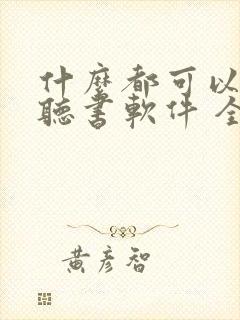 什麼都可以
聽書軟件 全
黃彥智